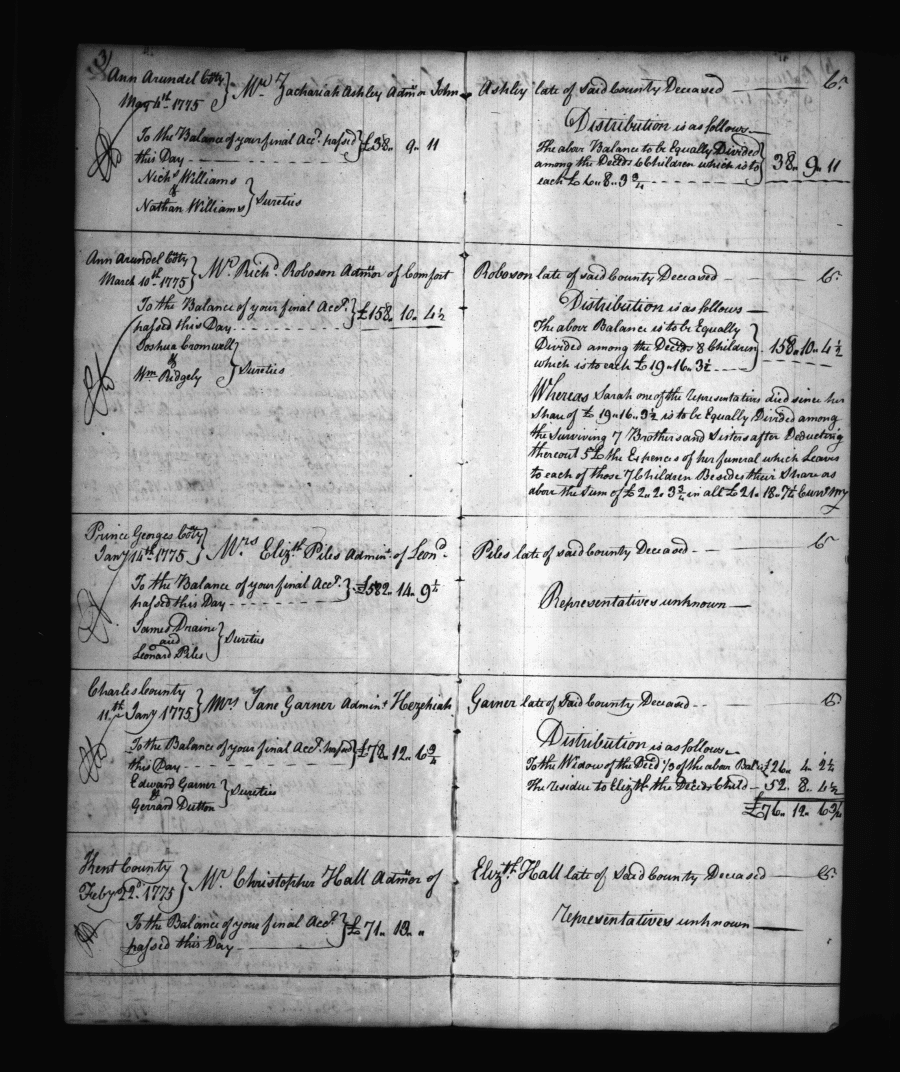 31
Ann Arundel Coty } Mr. Zachariah Ashley Admor John Ashley late of Said County Deceased — Cr.
May 4th 1775
To the Balance of your final Acct. passed } £38.. 9.. 11
this Day
Nichs Williams
&
Nathan Williams } Sureties
Distribution is as follows
The above Balance to be Equally Divided
among the Deceds 6 Children which is to } 38.. 9.. 11
each £6.. 8.. 3 3/4
Ann Arundel Coty } Mr. Richd. Roboson Admor of Comfort Roboson late of said County Deceased — Cr.
March 10th 1775
To the Balance of your final Acct. } £158.. 10.. 4 1/2
passed this Day
Joshua Cromwell
&
Wm Ridgely } Sureties
Distribution is as follows
The above Balance is to be Equally
Divided among the Deceds 8 Children } 158.. 10.. 4 1/2
which is to each £19.. 16.. 3 1/2
Whereas Sarah one of the representatives died since her
Share of £19.. 16.. 3 1/2 is to be Equally Divided among
the Surviving 7 Brothers and Sisters after Deducting
thereout 5£ the Expences of her funeral which Leaves
to each of those 7 Children Besides their Share as
above the Sum of £2.. 2.. 3 3/4 in all £21.. 18.. 7 1/4 Curr My
Prince Georges Coty } Mrs Elizth Piles Adminx of Leond. Piles late of said County Deceased — Cr
Jany 14th 1775
To the Balance of your final Acct. } £582.. 14.. 9 1/4
passed this Day
James Draine
and
Leonard Piles } Sureties
Representatives unknown
Charles County } Mrs Jane Garner Adminx Hezekiah Garner late of Said County Deceased — Cr
11th Jany 1775
To the Balance of your final Acct. passed } £78.. 12.. 6 3/4
this Day
Edward Garner
&
Gerrard Dutton } Sureties
Distribution is as follows
To the Widow of the Deced 1/3 of the above Balce £26.. 4.. 2 1/4
The residue to Elizth the Deceds Child — 52.. 8.. 4 1/2
£76.. 12.. 6 3/4
Kent County } Mr. Christopher Hall Admor of Elizth Hall late of Said County Deceased — Cr.
Feby 22d. 1775
To the Balance of your final Acct. } £71.. 13.. "
passed this Day
Representatives unknown